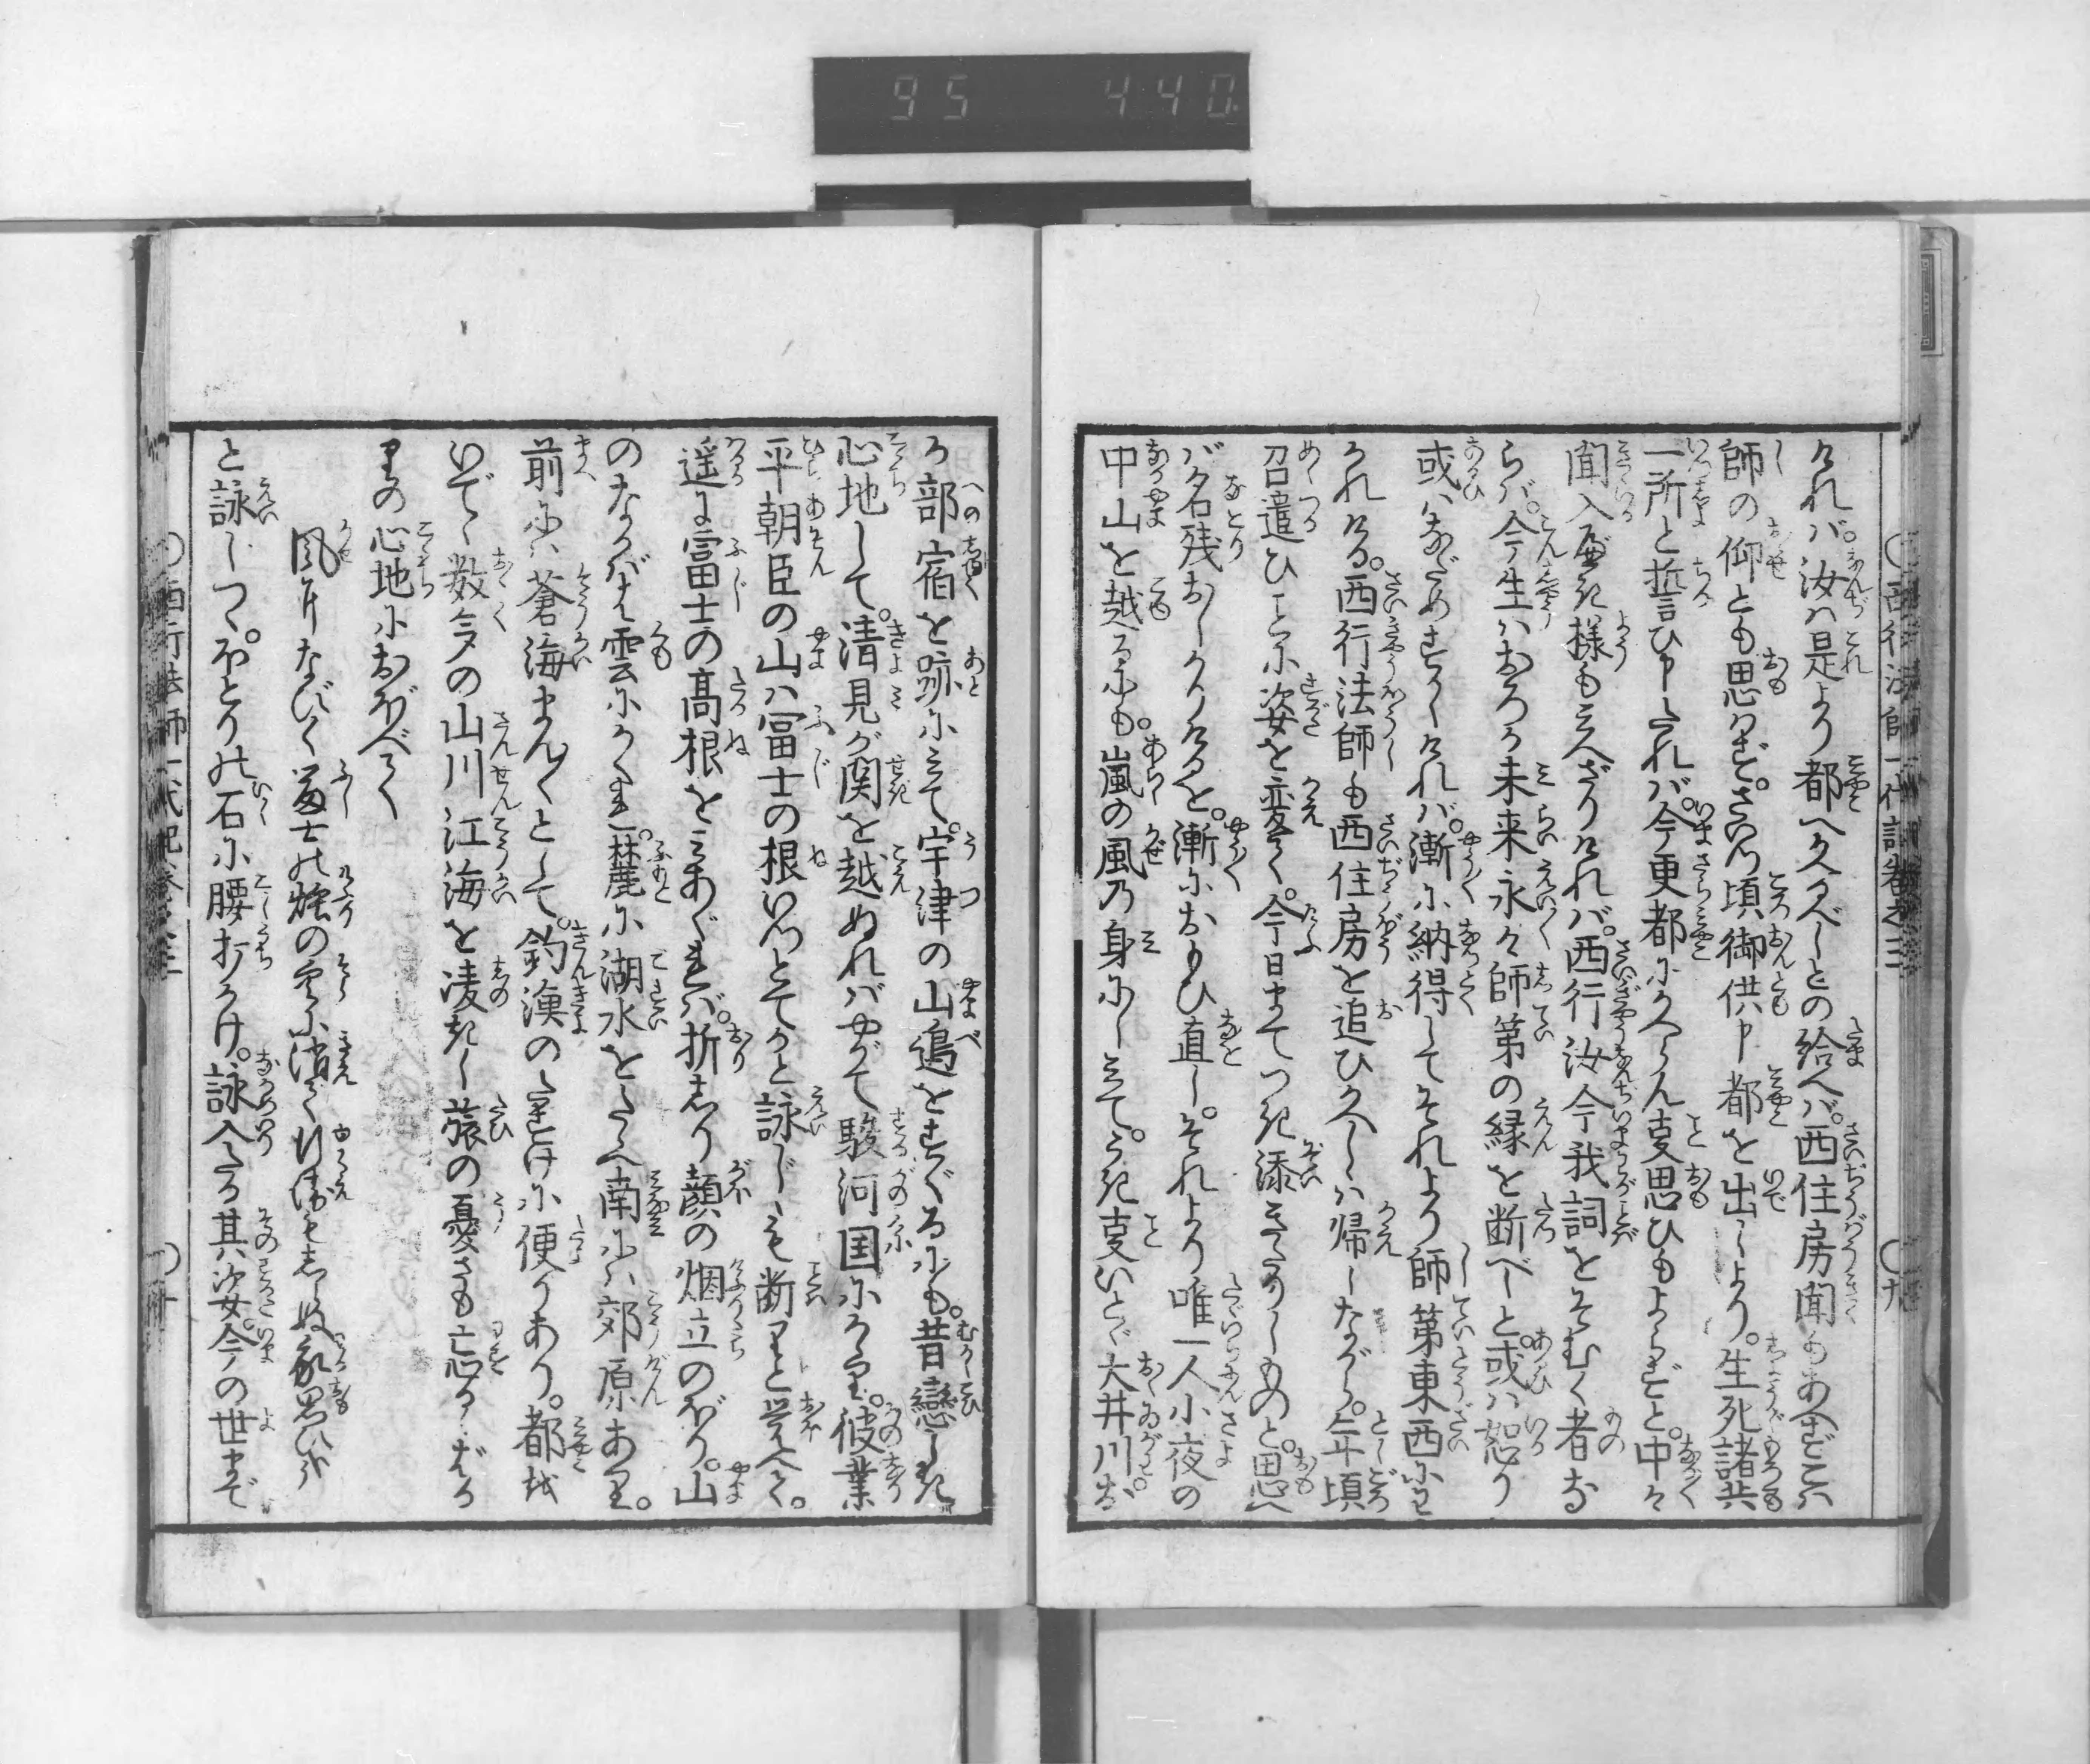 95 440
西行法師一代記巻之三 十九
けれバ。汝は是より都へ久べしとの給へバ。西住房聞もあへずこハ
師の仰とも思はず。さいつ頃御供申都を出しより。生死諸共
一所と誓ひ申たれバ。今更都にかへらん事思ひもよらずと。中々
聞入べき様も見へざりけれバ。西行汝今我詞をそむく者な
らバ。今生ハおろか未来永々師第の縁を断べしと。或ハ怒り
或ハなだめすかしけれバ。漸に納得してそれより師第東西にわ
かれける。西行法師も西住房を追ひかへしハ帰しながら。年頃
召遣ひことに姿を変て。今日までつき添きたりしものと。思へ
バ名残おしかりけるを。漸におもひ直し。それより唯一人小夜の
中山を越るにも。嵐の風の身にしみて。うき事いとゞ大井川。お
か部宿を跡にみて。宇津の山邉をすぐるにも。昔戀しき
心地して。清見が関を越ぬれバやがて駿河国にかゝり。彼業
平朝臣の山ハ冨士の根いつとてかと詠じしも断りと覚へて。
遥に富士の高根をみあぐれバ。折しり顔の烟立のぼり。山
のなかばは雲にかくれ。麓に湖水をたゝへ南にハ郊原あり。
前にハ蒼海まん〱として。釣漁のたすけに便りあり。都を
いでゝ数多の山川江海を凌ぎし旅の憂さも忘るゝばか
りの心地におぼへて
風になびく富士の煙の空に消て行衛もしらぬ我思ひかな
と詠じつゝ。ほとりの石に腰打かけ。詠入たる其姿。今の世まで
西行法師一代記巻之三 二十